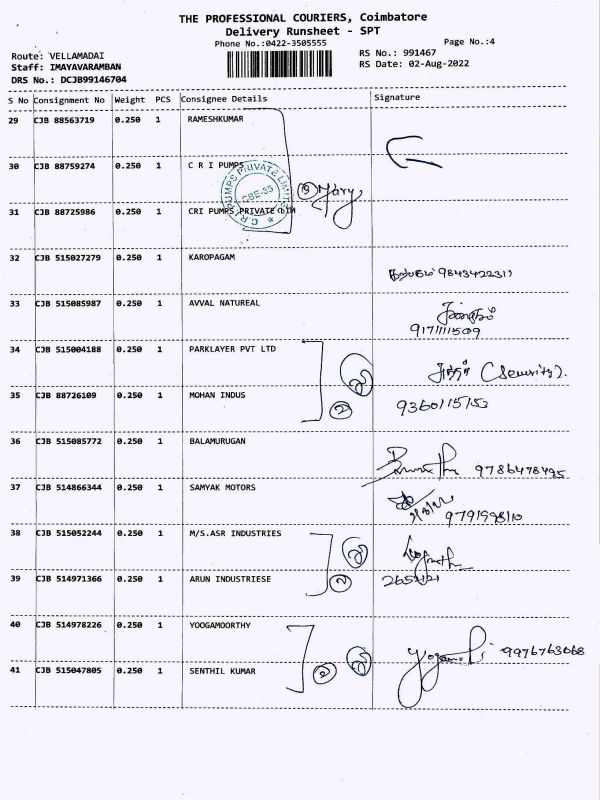 THE PROFESSIONAL COURIERS, Coimbatore
Delivery Runsheet - SPT
Phone No.:0422-3505555
Page No.:4
Route: VELLAMADAI
RS No.: 991467
Staff: IMAYAVARAMBAN
RS Date: 02-Aug-2022
DRS No.: DCJB99146704
S No Consignment No Weight PCS Consignee Details Signature
29 CJB 88563719 0.250 1 RAMESHKUMAR
30 CJB 88759274 0.250 1 C R I PUMPS
C.R.I. PUMPS PRIVATE LIMITED
CBE-35
③ Mary
31 CJB 88725986 0.250 1 CRI PUMPS PRIVATE LIM
32 CJB 515027279 0.250 1 KAROPAGAM
9843422311
33 CJB 515085987 0.250 1 AVVAL NATUREAL
9171111509
34 CJB 515004188 0.250 1 PARKLAYER PVT LTD
(Security).
35 CJB 88726109 0.250 1 MOHAN INDUS
② 9360115153
36 CJB 515085772 0.250 1 BALAMURUGAN
9786478495
37 CJB 514866344 0.250 1 SAMYAK MOTORS
9791998110
38 CJB 515052244 0.250 1 M/S.ASR INDUSTRIES
39 CJB 514971366 0.250 1 ARUN INDUSTRIESE
②
40 CJB 514978226 0.250 1 YOOGAMOORTHY
9976763068
41 CJB 515047805 0.250 1 SENTHIL KUMAR
②